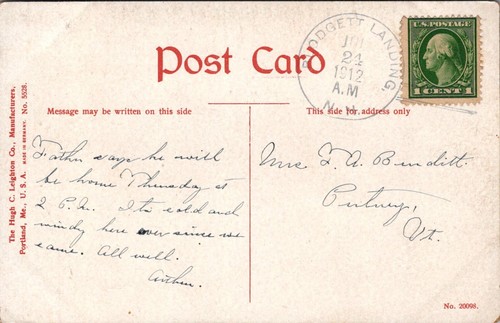 Post Card
BLODGETT LANDING,
JUL
24
1912
A.M
N.H.
U.S. POSTAGE
1 CENT 1
Message may be written on this side
This side for address only
The Hugh C. Leighton Co., Manufacturers,
Portland, Me., U. S. A. MADE IN GERMANY. No. 5528.
Father says he will
be home Thursday at
2 P.M. It's cold and
windy here ever since we
came. All well.
Arthur.
Mrs. F. A. Burditt.
Putney,
Vt.
No. 20098.